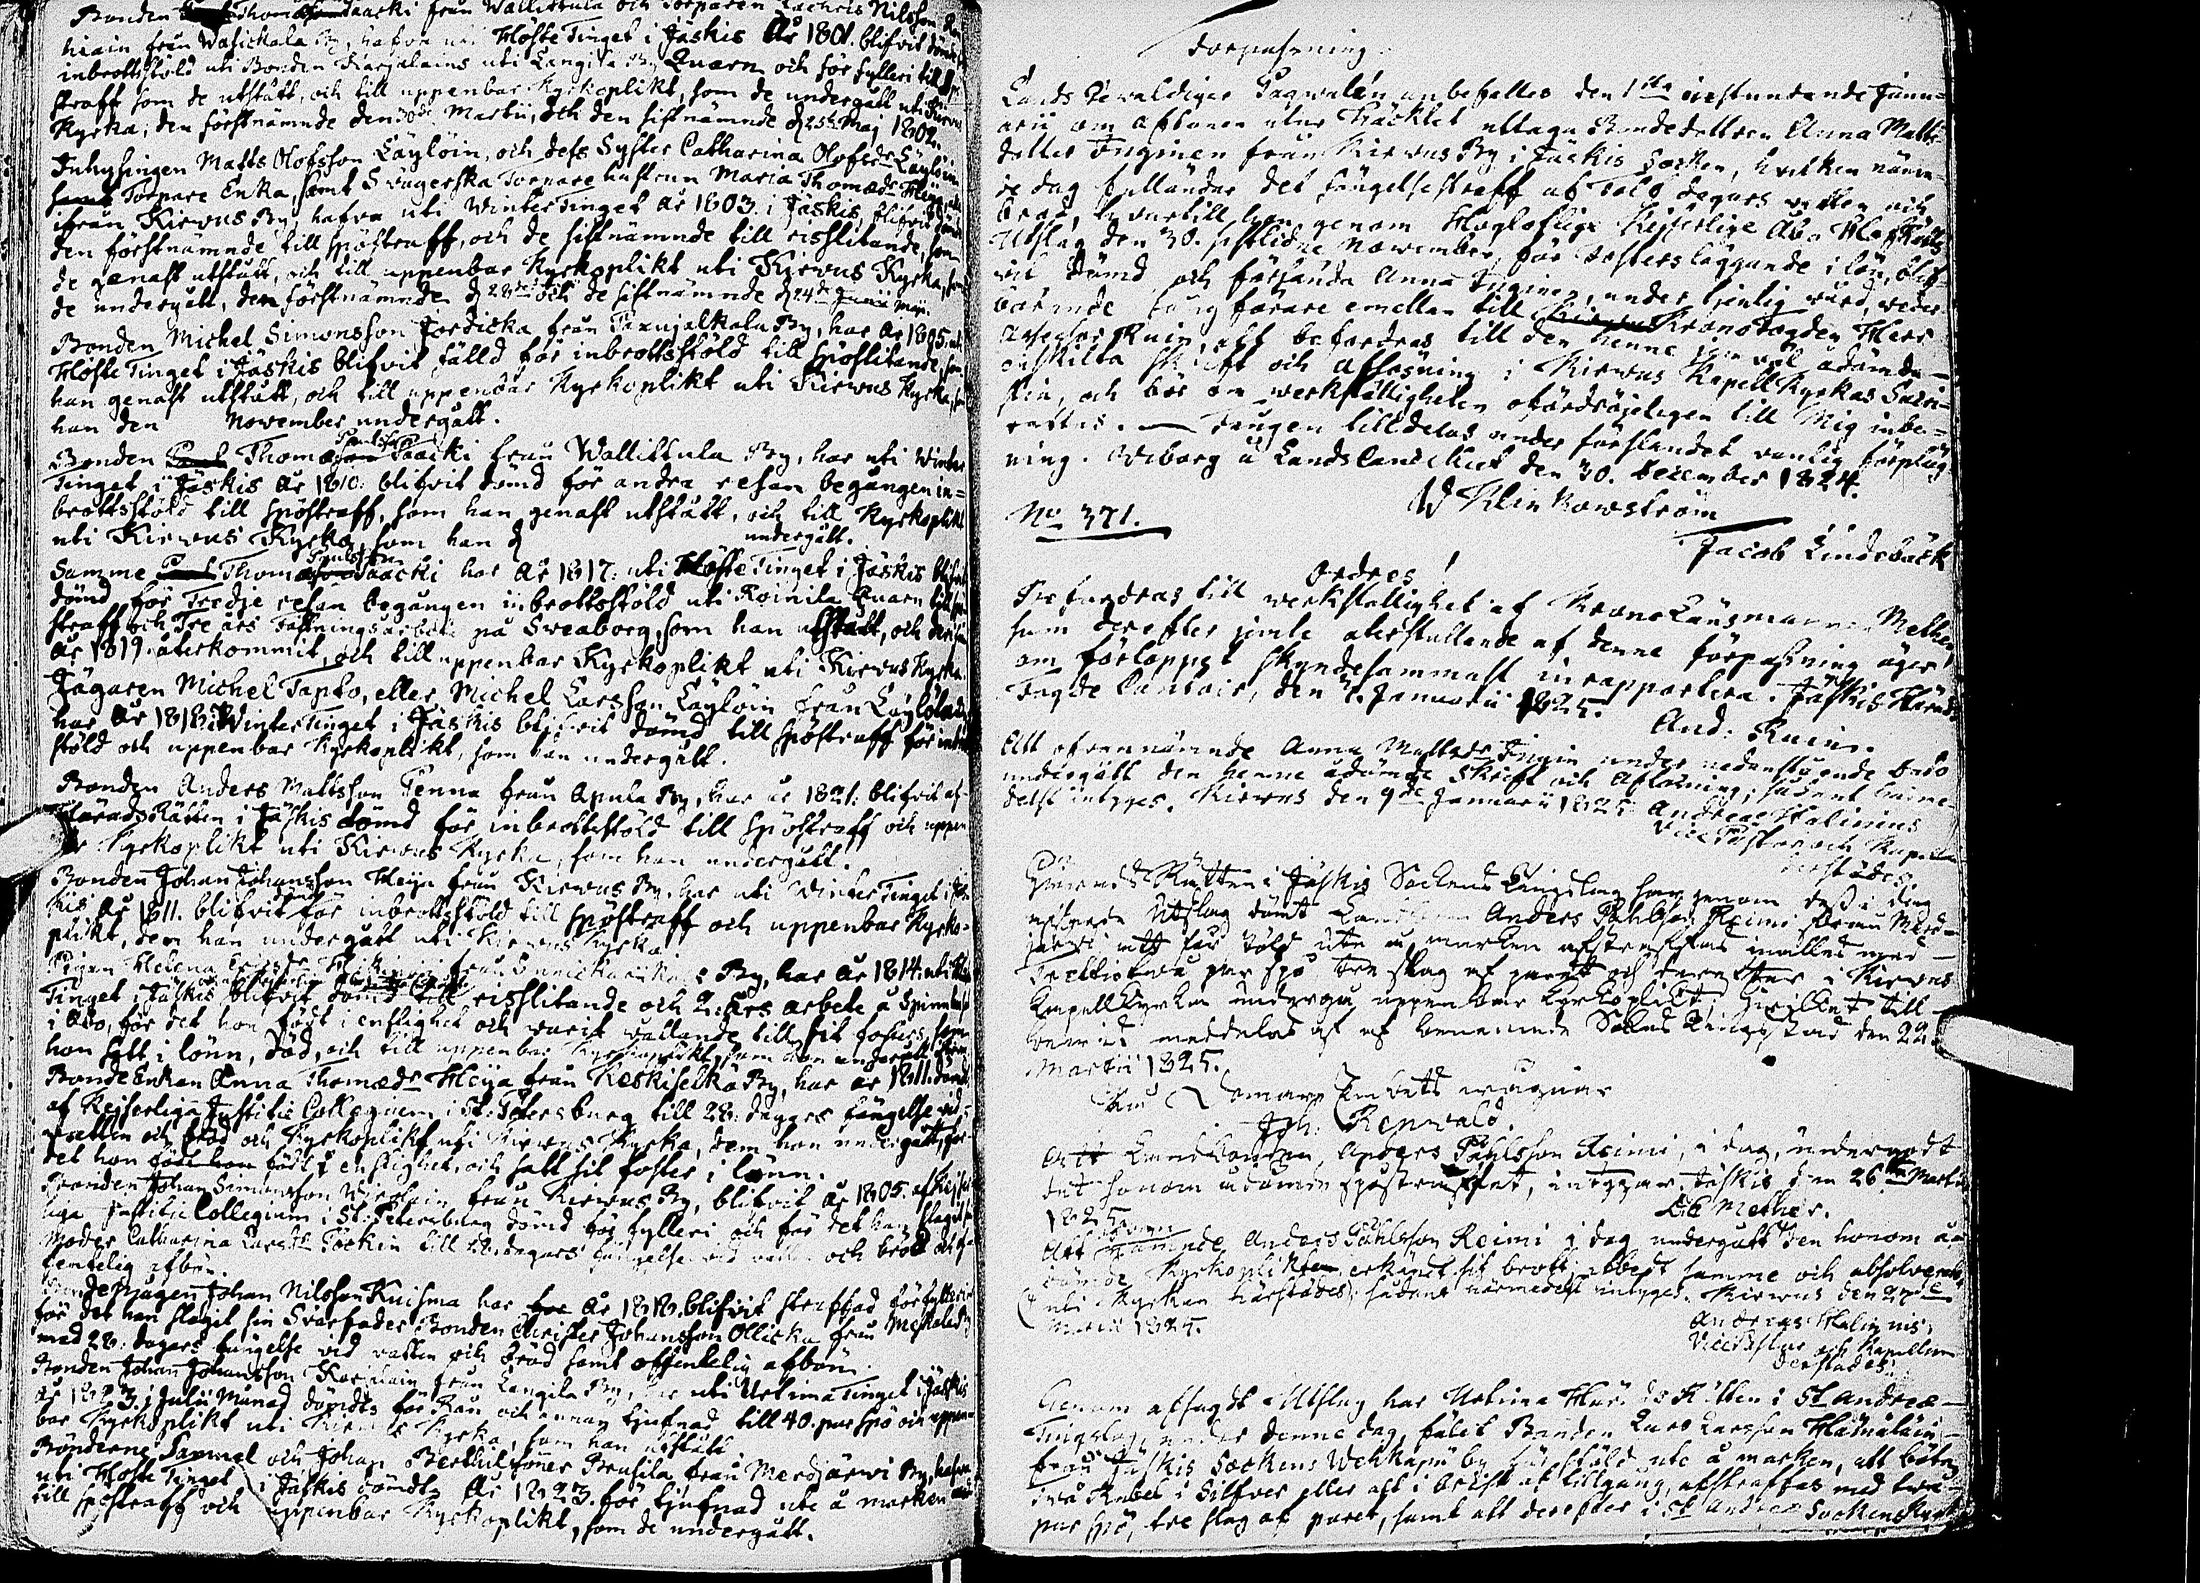 Bonden Thomasson Paacki från Wallittula och Torparen Zachris Nilsson
hiain från Wasickala By, hafva uti Höste Tinget i Jäskis År 1801. blifvit dömde
inbrottsstöld uti Bonden Karjalains uti Langila By Quarn och för fylleri till
straff som de utstått, och till uppenbar Kyrkoplikt, som de undergått uti Kirvus
Kyrka, den förstnämnde den 30de Martii, och den sistnämnde d 25te Maj 1802.
Inhysingen Matts Olofsson Läylöin, och dess Syster Catharina Olofsdr Läylöin
samt Torpare Enka, samt Svägerska Torpare hustrun Maria Thomædr
ifrån Kirvus By, hafva uti WinterTinget år 1803. i Jäskis, blifvit dömde
den förstnämnde till spöstraff, och de sistnämnde till risslitande, som
de genast utstått, och till uppenbar Kyrkoplikt uti Kirvus Kyrka, som
de undergått, den förstnämnde d 28de och de sistnämnde d 24de Junii
Bonden Michel Simonsson Jordicka från Pannjalkala By, har år 1805. uti
Höste Tinget i Jäskis blifvit fälld för inbrottsstöld till spöslitande, som
han genast utstått, och till uppenbar Kyrkoplikt uti Kirvus Kyrka, som
han den November undergått.
Bonden Paul Thomasson Paulsson Paacki från Wallittula By, har uti Winter
Tinget i Jäskis år 1810. blifvit dömd för andra resan begången in=
brottsstöld till spöstraff, som han genast utstått, och till Kyrkoplikt
uti Kirvus Kyrka, som han d undergått.
Samme Paul Thomasson Paulsson Paacki har År 1817. uti Höste Tinget i Jäskis blifvit
dömd för Tredje resan begången inbrottsstöld uti Roinila Quarn till spö-
straff och Tre års Fästningsarbete på Sweaborg, som han utstått, och derifrån
År 1819. återkommit, och till uppenbar Kyrkoplikt uti Kirvus Kyrka.
Jägaren Michel Tapto, eller Michel Larsson Läylöin från Läylölä
har År 1818. WinterTinget i Jäskis blifvit dömd till spöstraff för inbrotts
stöld och uppenbar Kyrkoplikt, som han undergått.
Bonden Anders Mattsson Penna från Apula By, har år 1821. blifvit af
HäradsRätten i Jäskis dömd för inbrottsstöld till spöstraff och uppen
Kyrkoplikt uti Kirvus Kyrka, som han undergått.
Bonden Johan Johansson Heijn från Kirvus By, har uti Winter Tinget i Jäs
kis År 1811. blifvit dömd för inbrottsstöld till spöstraff och uppenbar Kyrko=
plikt, dem han undergått uti Kirvus Kyrka.
Pigan Helena Ericsdr från By, har år 1814. uti Höste
Tinget i Jäskis blifvit dömd till risslitande och 2. års arbete å Spinnhuset
i Åbo, för det hon födt i enslighet och varit vållande till sit fosters, som
hon satt i lönn, död, och till uppenbar Kyrkoplikt, som hon undergått
BondeEnkan Anna Thomædr Heija från Keskiselkä By, har år 1811. dömd
af Kejserliga Justitiæ Collegium i St. Petersburg till 28. dagars fängelse vid
vatten och bröd och Kyrkoplikt uti Kirvus Kyrka, dem hon undergått, för
det hon födt i enslighet, och satt sit foster i lönn.
Bonden Johan Simonsson från Kirvus By, blifvit År 1805. af Kejser
liga Justitiæ Collegium i St. Petersburg dömd för fylleri och för det han slagit sin
Moder Catharina Larsdr Töckin till 28. dagars fängelse vid vatten och bröd och of
fentelig afbön.
BondeMågen Johan Nilsson Kuisma har År 1818. blifvit straffad för fylleri och
för det han slagit sin Svärfader Bonden Christer Johansson Ollicka från
med 28. dagars fängelse vid vatten och bröd samt offentelig afbön.
Bonden Johan Johansson Karjalain från Langila By, har uti UrtimaTinget i Jäskis
År 1823. i Julii Månad dömdts för Rån och annan tjufnad till 40. par spö och uppen-
bar Kyrkoplikt uti Kirvus Kyrka, som han utstått
Bönderne Samuel och Johan Bertilssöner Brusila från Merdjärvi By, hafva
uti Höste Tinget i Jäskis dömdts År 1823. för tjufnad ute å marken
till spöstraff och uppenbar Kyrkoplikt, som de undergått.
Förpassning.
Lands Gevaldiger Pagvalen anbefalles den 1sta instundande Janu=
arii om aftonen utur Häcktet uttaga BondeDottren Anna Matts
dotter Inginen från Kirvus By i Jäskis Socken, hvilken nämn=
de dag fulländar det fängelsestraff af tolf dagars vatten och
bröd, hvartill hon genom Höglofliga Kejserlige Åbo HofRätts
Utslag den 30. sistlidne November, för Fosters läggande i lön, blif=
vit dömd, och försända Anna Inginen, under tjenlig vård, veder
börande fång förare emellan till KronoFogden Herr
Assessor Ruin, att befordras till den henne jemväl ådömde
enskilta skrift och aflösning i Kirvus Kapell Kyrkas Sacri=
stia, och bör om verkställigheten ofördröjeligen till Mig inbe=
rättas. — Fången tilldelas under förslandet vanlig förpläg=
ning. Wiborg å LandsCancelliet den 30. December 1824.
W Klinckowström
No 371.
Jacob Lindebäck
Ordres!
Befordras till verkställighet af KronoLänsmannen Mether,
som derefter jemte återställande af denne förpassning äger
om förloppet skyndesammast inrapportera. Jäskis Härads
Fogde Contoir, den 7. Januarii 1825.
And: Ruin.
Att ofvannämnde Anna Mattsdr Ingin under nedanstående dato
undergått den henne ådömde Skrift och Aflösning; sådant härme=
delst intyges. Kirvus den 9de Januarii 1825. Andreas Halinius
Vice Pastor och Kapellan
derstädes
Härads Rätten i Jäskis Sockens Tingslag har genom dess i dag
Utslag dömt Anders Påhlsson Reimi från Merd=
järvi att för stöld ute å marken afstraffas medelst med
Trettiotvå par spö tre slag af paret och derefter i Kirvus
Kapell Kyrka undergå uppenbar Kyrkoplikt, hvilket till
bevis meddelas af benämnde Sockens Tingsstad den 22
Martii 1825.
På Domare Embets vägnar
Joh: Renvald.
Att Landbonden, Anders Påhlsson Reimi, i dag, undergådt
det honom ådömde spöstraffet, intygar, Jäskis den 26te Martii
1825. C.E Mether.
Att ofvan nämnde Anders Påhlsson Reimi i dag undergått den honom å=
dömde Kyrkoplikten, erkändt sit brott, afbedt samme och absolverats
uti Kyrkan härstädes; sådant härmedelst intyges. Kirvus den 27de
Martii 1825.
Andreas Halinius,
Vice Pastor och Kapellan
derstädes.
Genom afsagdt Utslag har Urtima HäradsRätten i St Andreæ
Tingslag, under denne dag, fäldt Bonden Lars Larsson Hämäläin
från Jäskis Sockens Wehkapu by för stöld ute å marken, att böta
två Rubel i Silfver eller att i brist af tillgång, afstraffas med två
par spö, tre slag af paret, samt att derefter i St Andreæ Sockens Kyrka